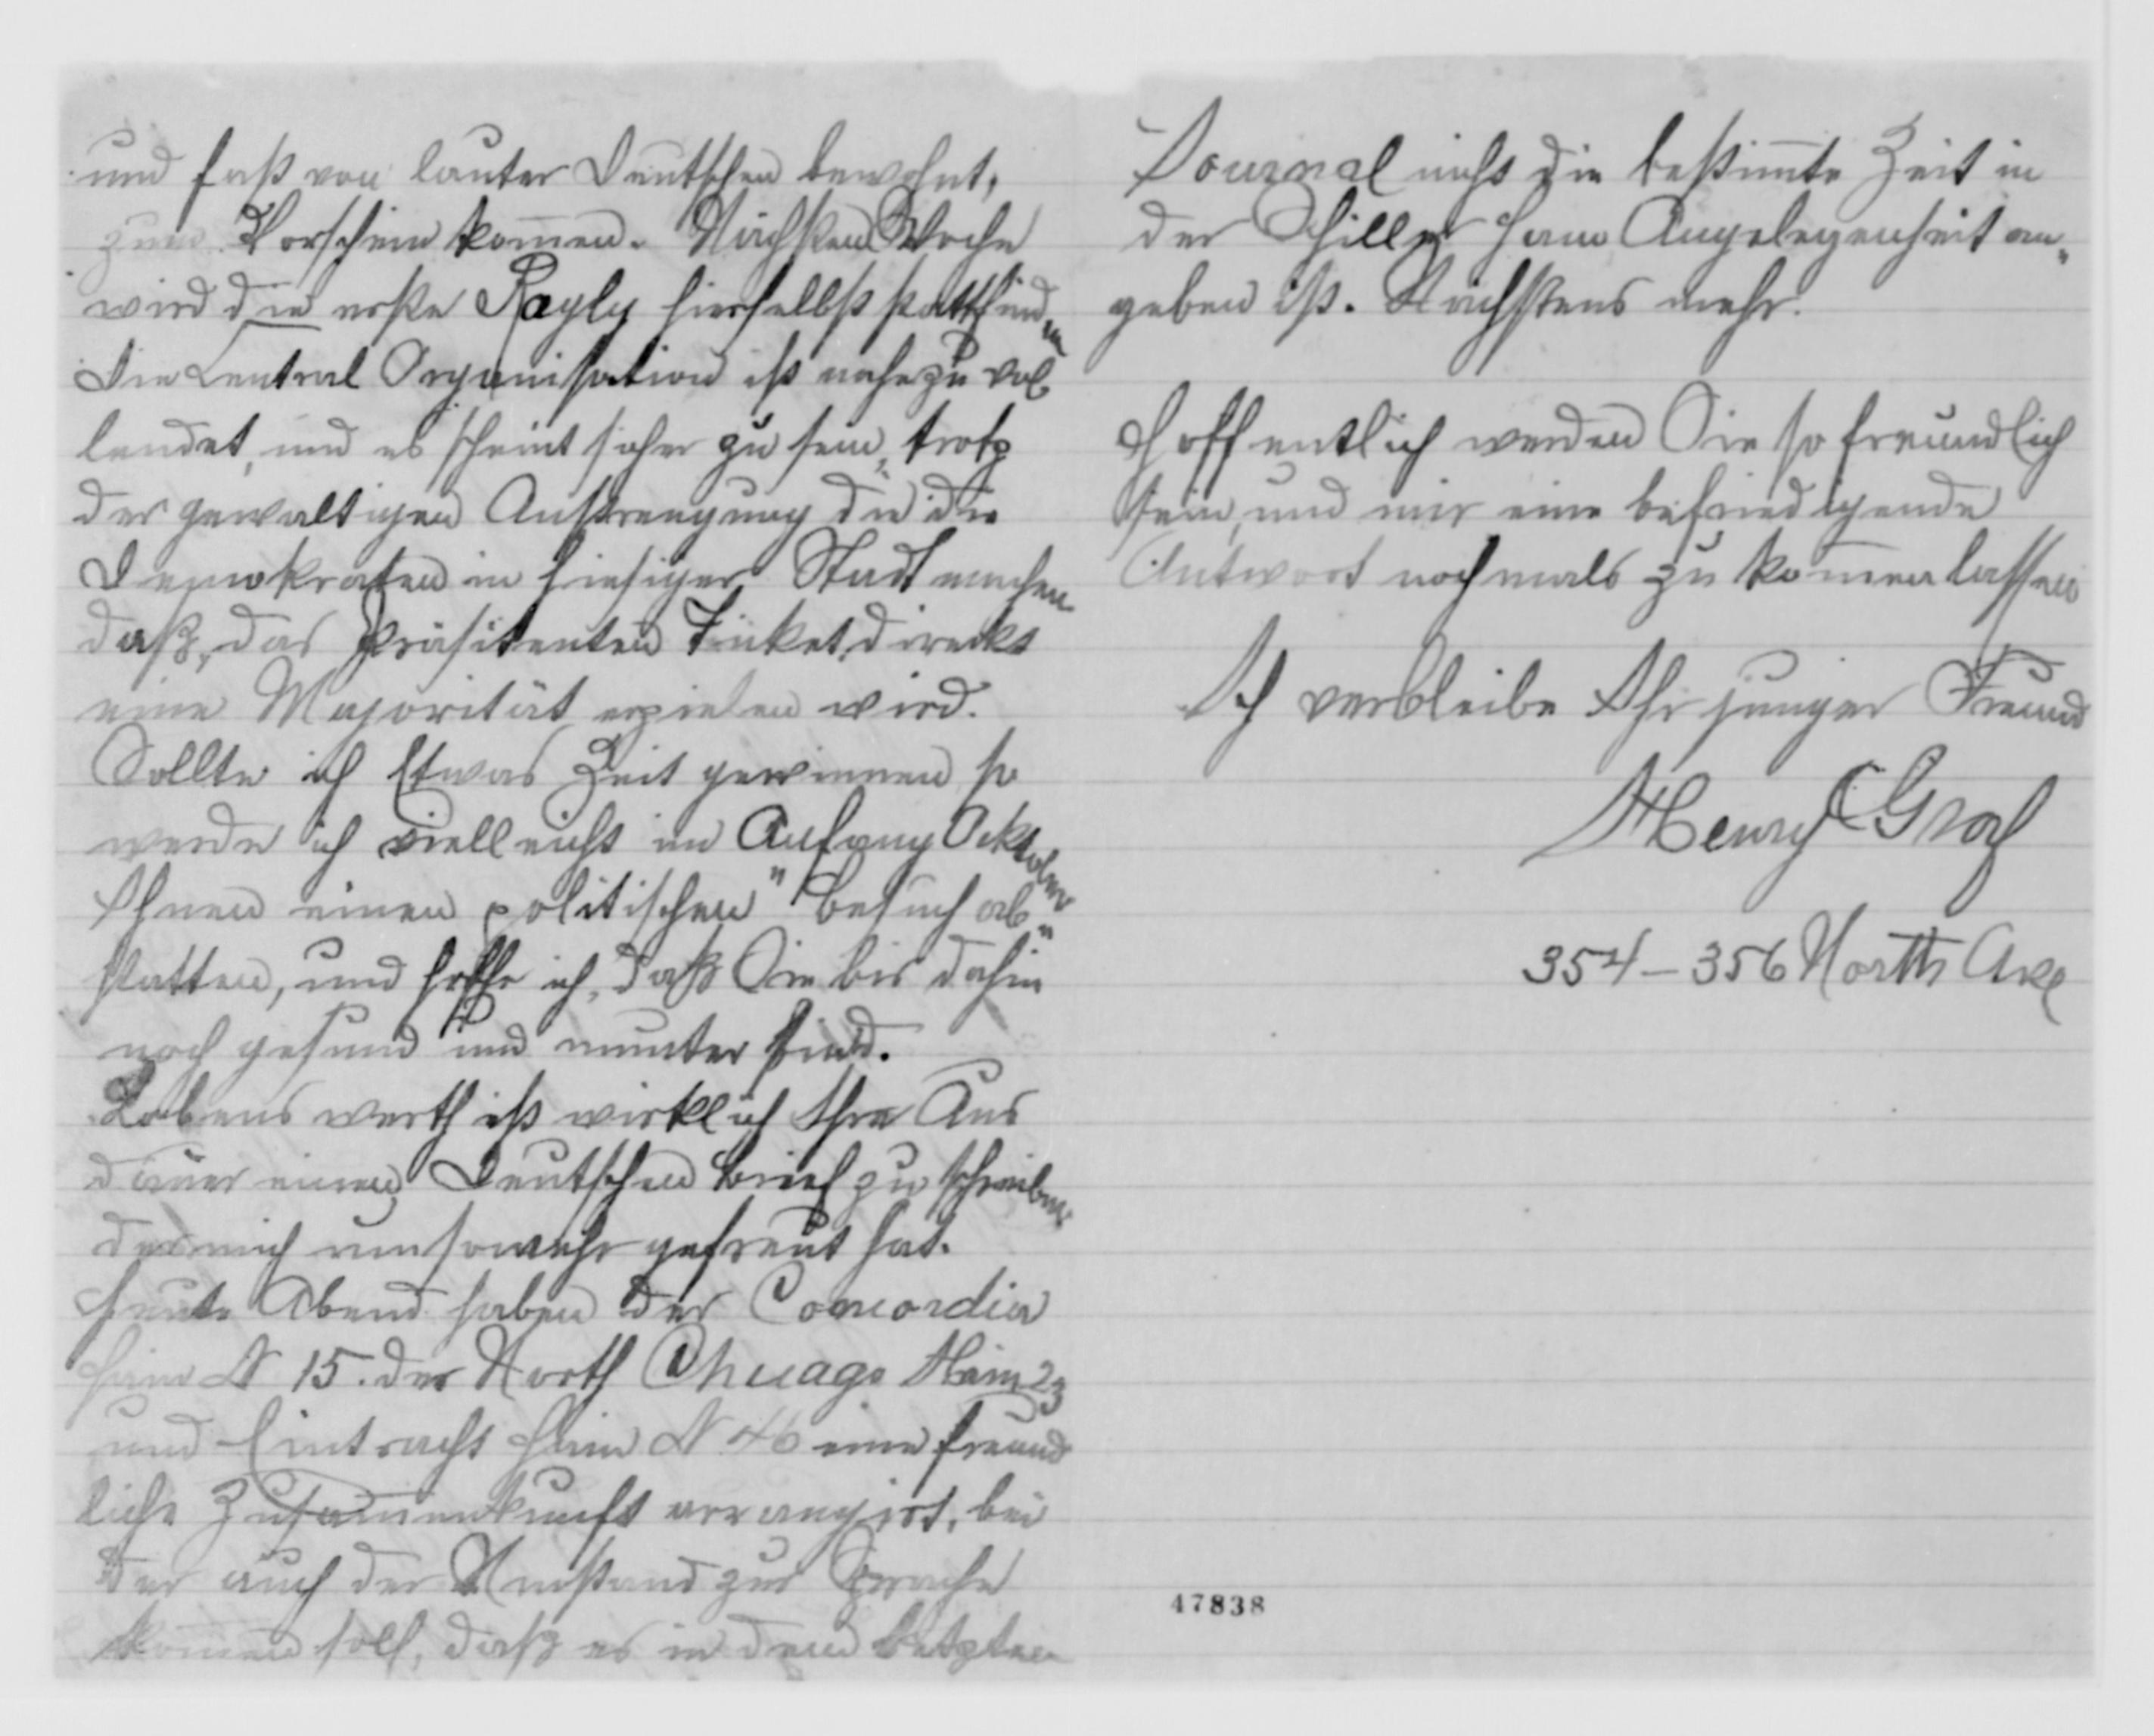 und fast von lauter Deutschen bewohnt,
zum Vorschein kom̄en. Nächsten Woche
wird die erste Rayly hierselbst stattfinden
Die Central Organisation ist nahezu vol
lendet, und es scheint sicher zu sein, trotz
der gewaltigen Anstrengung die die
Demokraten in hiesiger Stadt machen
daß, das Präsidenten Ticket direckt
eine Majorität erzielen wird.
Sollte ich Etwas Zeit gewinnen so
werde ich vielleicht im Anfang Ocktober
Ihnen einen politischen "Besuch ab"
statten, und hoffe ich, daß Sie bis dahin
noch gesund und munter sind.
Lobens werth ist wirklich Ihre Aus
dauer einen Deutschen Brief zu schreiben
der mich umsomehr gefreut hat.
Heute Abend haben der Concordia
Hain N 15. der North Chicago Hain 23
und Eintracht Hain N. 46 eine freund
liche Zusam̄enkunft arrangirt, bei
der auch der Umstand zur Sprache
kom̄en soll, daß es in dem letzten
Journal nicht die bestim̄te Zeit in
der Schiller Hain Angelegenheit an„
geben ist. Nächstens mehr.
Hoffentlich werden Sie so freundlich
sein, und mir eine befriedigende
Antwort nochmals zu kom̄en lassen
Ich verbleibe Ihr junger Freund
Henry C Graf
354 – 356 North Ave
47838